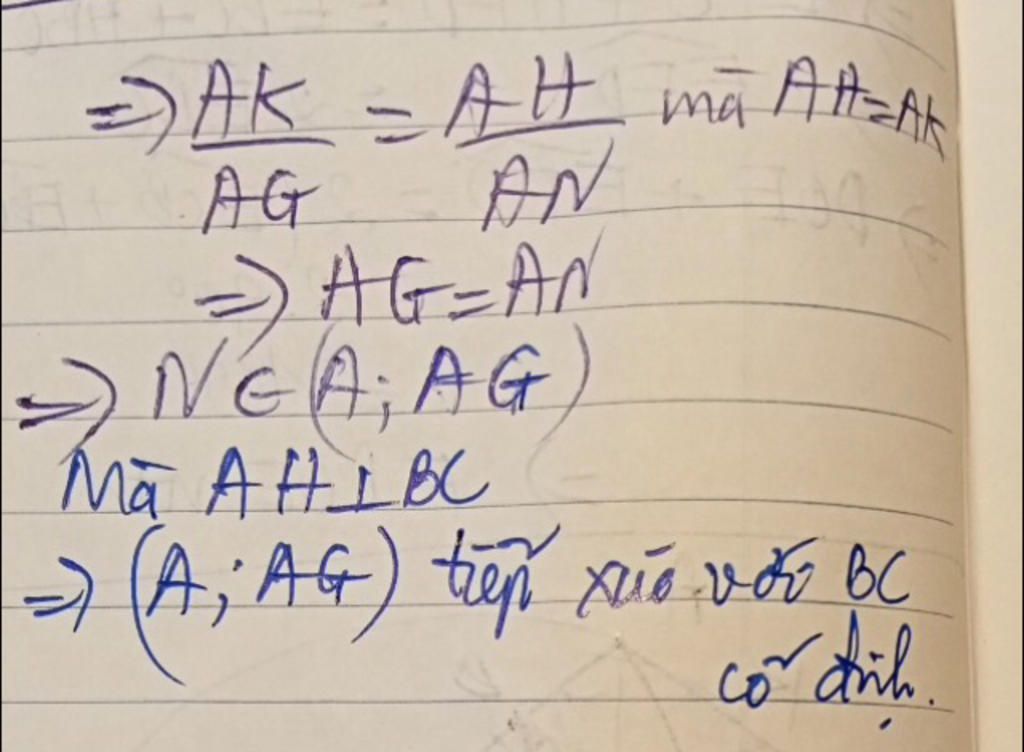 ⇒ AK/AG = AH/AN mà AH=AK
⇒ AG=AN
⇒ N∈(A; AG)
Mà AH⊥BC
⇒ (A; AG) tiếp xúc với BC
cố định.